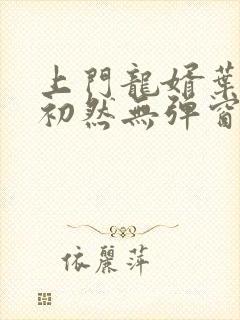 上門龍婿葉
初然無彈窗
依麗萍